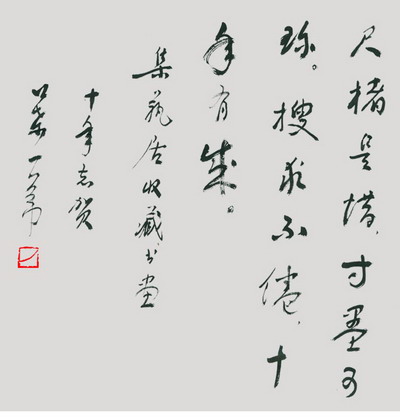 尺楮是惜，寸墨可
珍。搜求不倦，十
年有成。
集居收藏书画
十年志贺
一苇